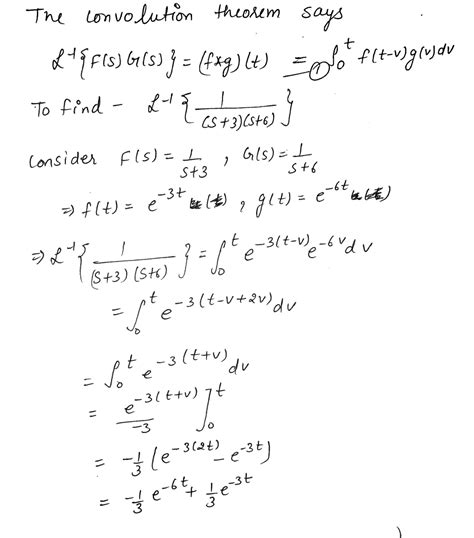 The convolution theorem says
ℒ⁻¹{F(s) G(s)} = (f*g)(t) = ① ∫₀ᵗ f(t-v)g(v)dv
To find - ℒ⁻¹{1/((s+3)(s+6))}
Consider F(s) = 1/(s+3) , G(s) = 1/(s+6)
⇒ f(t) = e^(-3t) , g(t) = e^(-6t)
⇒ ℒ⁻¹{1/((s+3)(s+6))} = ∫₀ᵗ e^(-3(t-v)) e^(-6v) dv
= ∫₀ᵗ e^(-3(t-v+2v)) dv
= ∫₀ᵗ e^(-3(t+v)) dv
= e^(-3(t+v))/(-3) ]₀ᵗ
= -1/3 (e^(-3(2t)) - e^(-3t))
= -1/3 e^(-6t) + 1/3 e^(-3t)